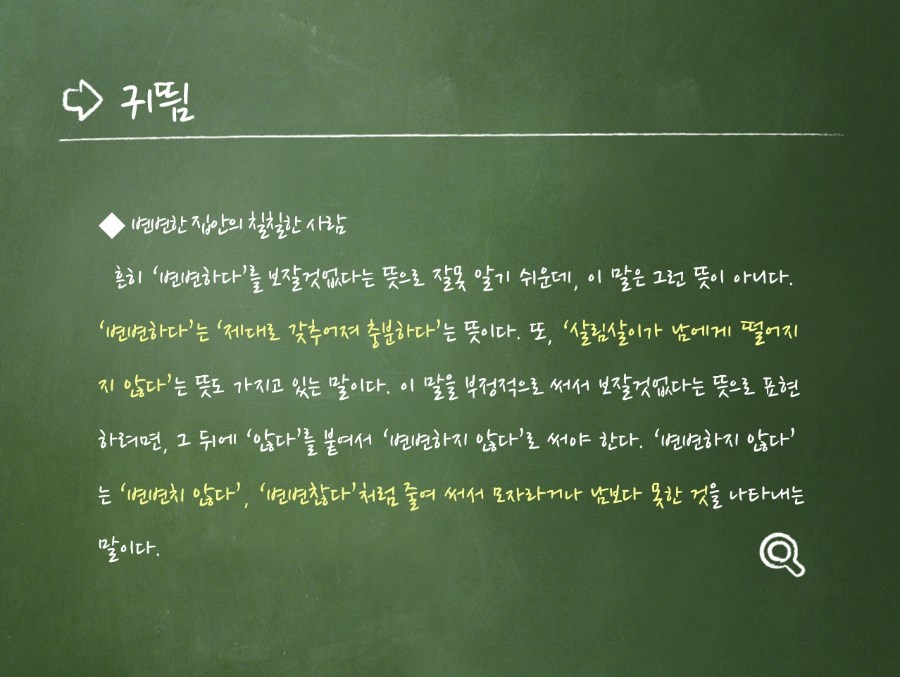 귀띔
◆ 변변한 집안의 칠칠한 사람
흔히 ‘변변하다’를 보잘것없다는 뜻으로 잘못 알기 쉬운데, 이 말은 그런 뜻이 아니다.
‘변변하다’는 ‘제대로 갖추어져 충분하다’는 뜻이다. 또, ‘살림살이가 남에게 떨어지
지 않다’는 뜻도 가지고 있는 말이다. 이 말을 부정적으로 써서 보잘것없다는 뜻으로 표현
하려면, 그 뒤에 ‘않다’를 붙여서 ‘변변하지 않다’로 써야 한다. ‘변변하지 않다’
는 ‘변변치 않다’, ‘변변찮다’처럼 줄여 써서 모자라거나 남보다 못한 것을 나타내는
말이다.